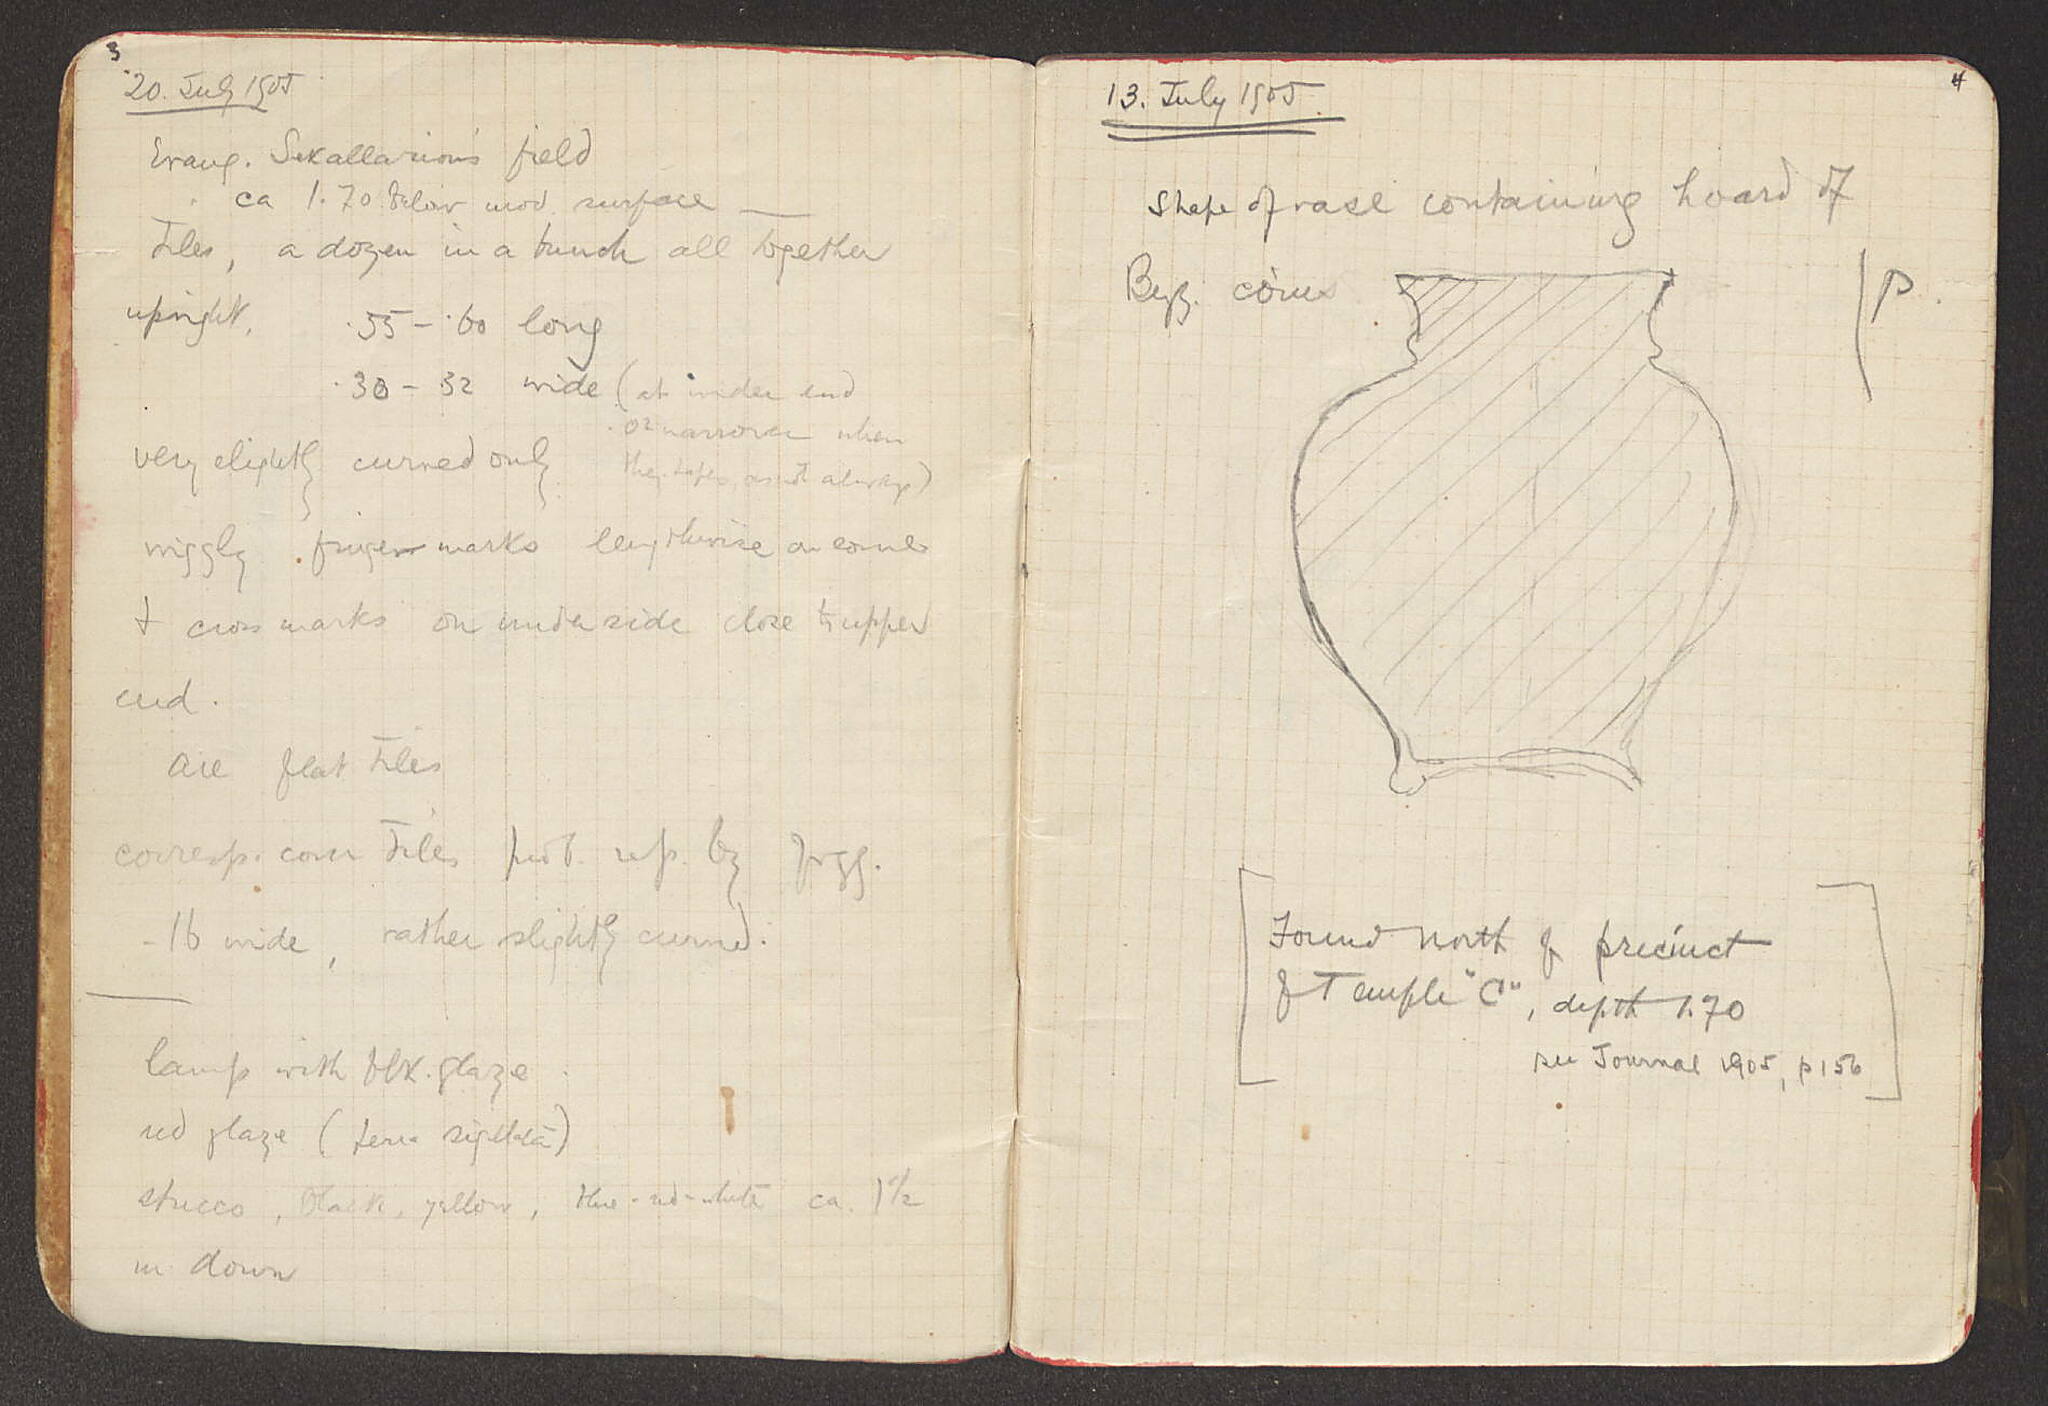 3
20. July 1905
Evang. Sekallarion's field
ca 1.70 below mod. surface —
Tiles, a dozen in a bunch all together
upright. .55 - .60 long
.30 - .32 wide (at wider end
.02 narrower when
they taper, as not always)
very slightly curved only
wiggly finger marks lengthwise on some
& cross marks on under side close to upper
end.
are flat tiles
corresp. cover tiles prob. rep. by fragg.
.16 wide, rather slightly curved.
lamp with blk. glaze
red glaze (terra sigillata)
stucco, black, yellow, blue-red-white ca. 1 1/2
m. down
4
13. July 1905
Shape of vase containing hoard of
Byz. coins
P.
[Found North of precinct
of Temple "C", depth 1.70
see Journal 1905, p 156]